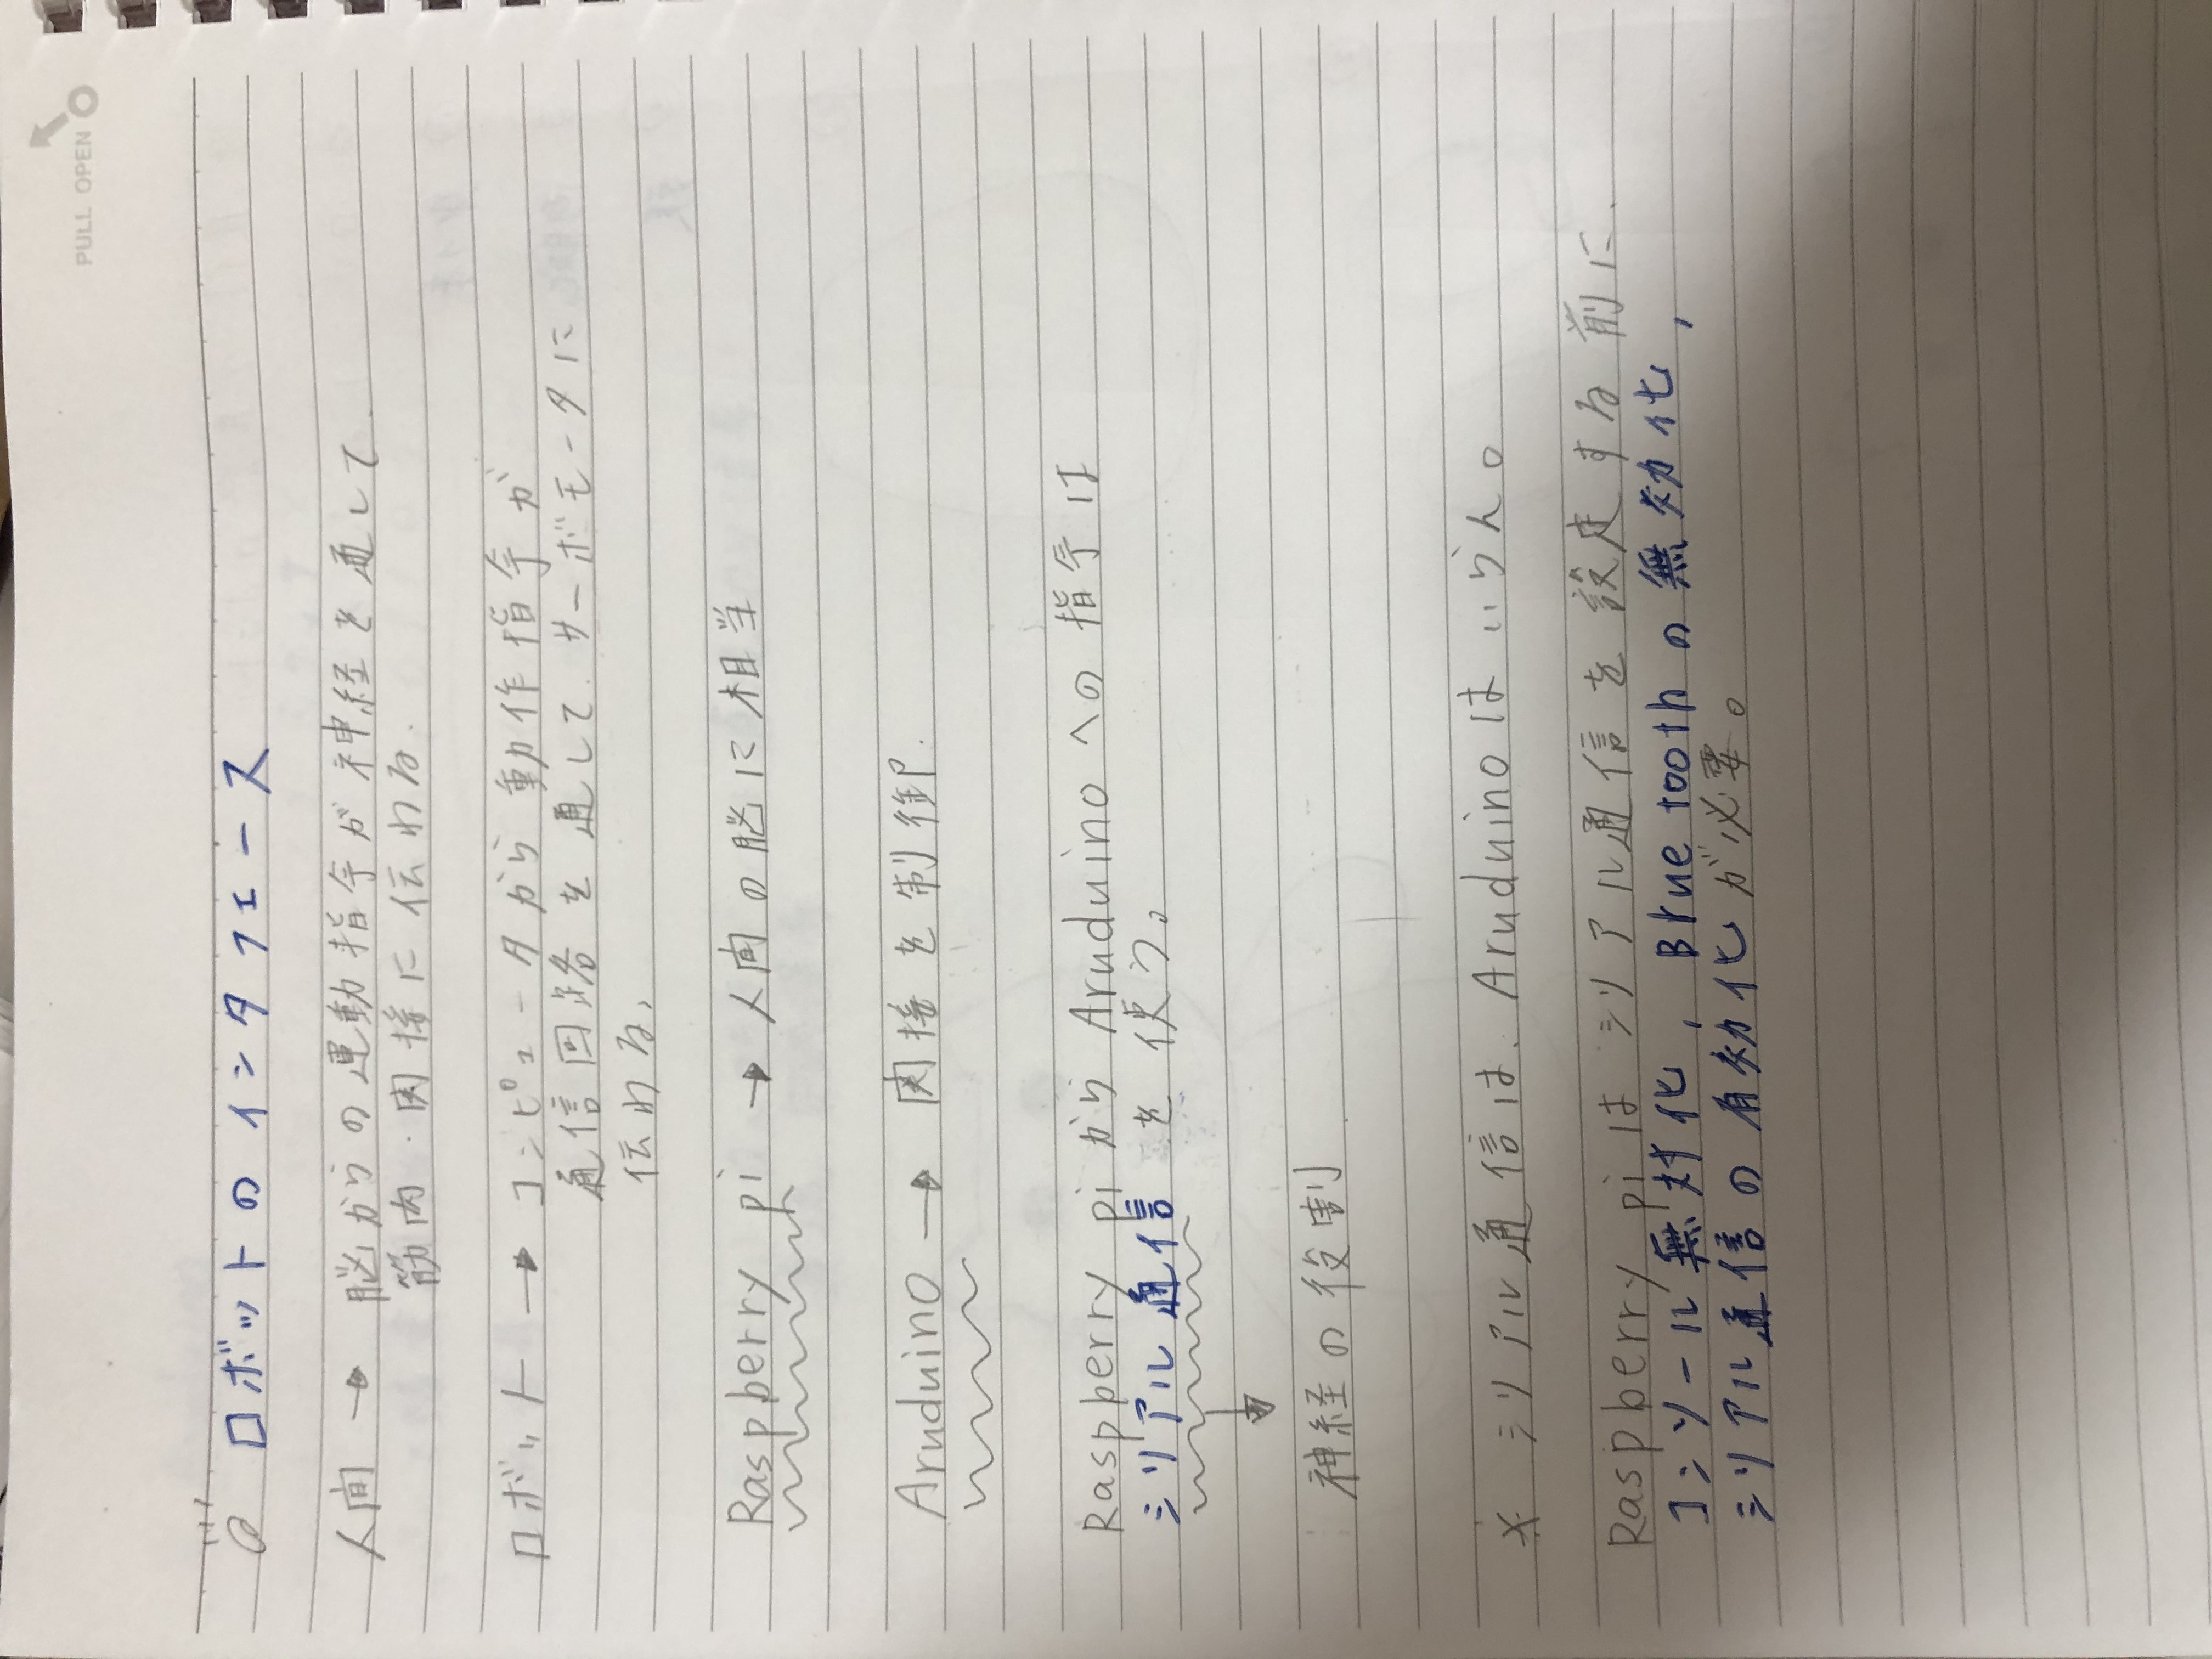 PULL OPEN
ロボットのインタフェース
人間 → 脳からの運動指令が神経を通して
筋肉・関接に伝わる.
ロボット → コンピュータから動作指令が
通信回路を通して、サーボモータに
伝わる,
Raspberry pi → 人間の脳に相当
Aruduino → 関接を制御.
Raspberry piからAruduinoへの指令は
シリアル通信を使う。
↓
神経の役割
※ シリアル通信は、Aruduinoはいらん。
Raspberry piはシリアル通信を設定する前に、
コンソール無対化, Bruetoothの無効化,
シリアル通信の有効化が必要。